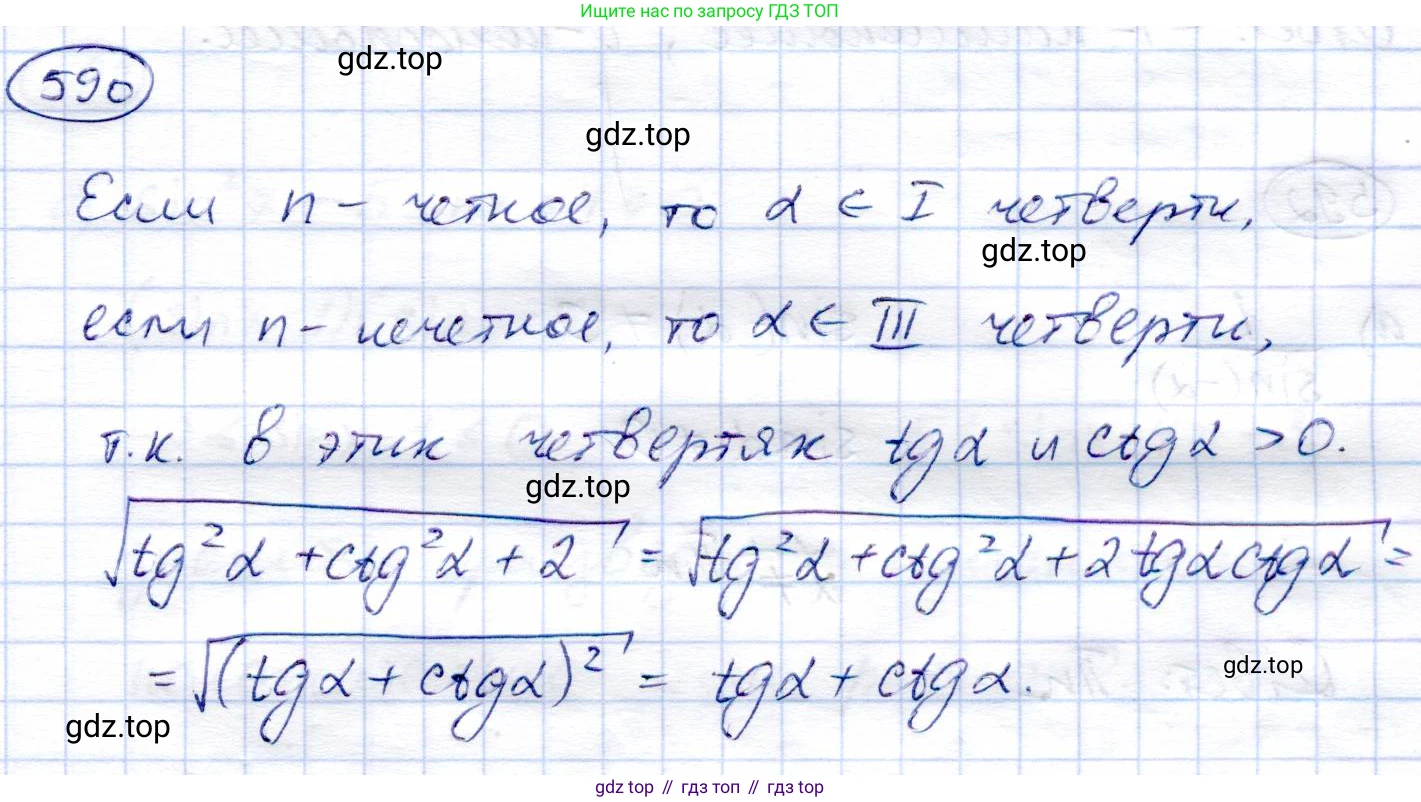 Ищите нас по запросу ГДЗ ТОП
590
gdz.top
gdz.top
Если n - четное, то α ∈ I четверти,
gdz.top
если n - нечетное, то α ∈ III четверти,
т.к. в этих четвертях tgα и ctgα > 0.
gdz.top
√(tg²α + ctg²α + 2) = √(tg²α + ctg²α + 2 tgα ctgα) =
= √((tgα + ctgα)²) = tgα + ctgα.
gdz.top
gdz.top
gdz top // гдз топ // gdz top